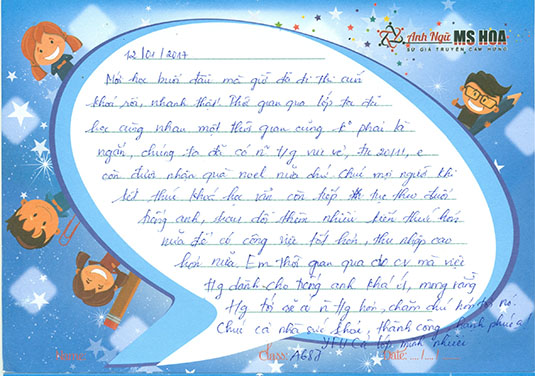 Anh Ngữ MS HOA
SỨ GIẢ TRUYỀN CẢM HỨNG
12/01/2017
Mới học buổi đầu mà giờ đã đi thi cuối
khoá rồi, nhanh thật! Thời gian qua lớp ta đã
học cùng nhau một thời gian cũng k phải là
ngắn, chúng ta đã có n~ tg vui vẻ, 20/11, e
còn được nhận quà noel nữa chứ. Chúc mọi người khi
kết thúc khoá học vẫn còn tiếp tục theo đuổi
tiếng anh, trau dồi thêm nhiều kiến thức hơn
nữa để có công việc tốt hơn, thu nhập cao
hơn nữa. Em thời gian qua cv mà việc
tg dành cho tiếng anh khá ít, mong rằng
tg tới sẽ có n~ tg hơn, chăm chú hơn tới nó.
Chúc cả nhà sức khoẻ, thành công, hạnh phúc ạ!
Yêu cả lớp mình nhiều
Name:
Class: A687
Date: .../.../...